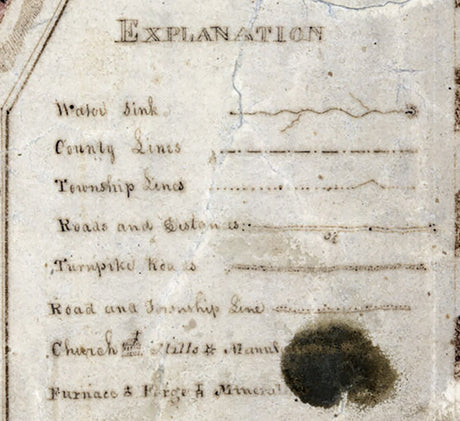 EXPLANATION
Water Sink
County Lines
Township Lines
Roads and Distances
Turnpike Roads
Road and Township Line
Church Mills & Manuf
Furnace & Forge Mineral